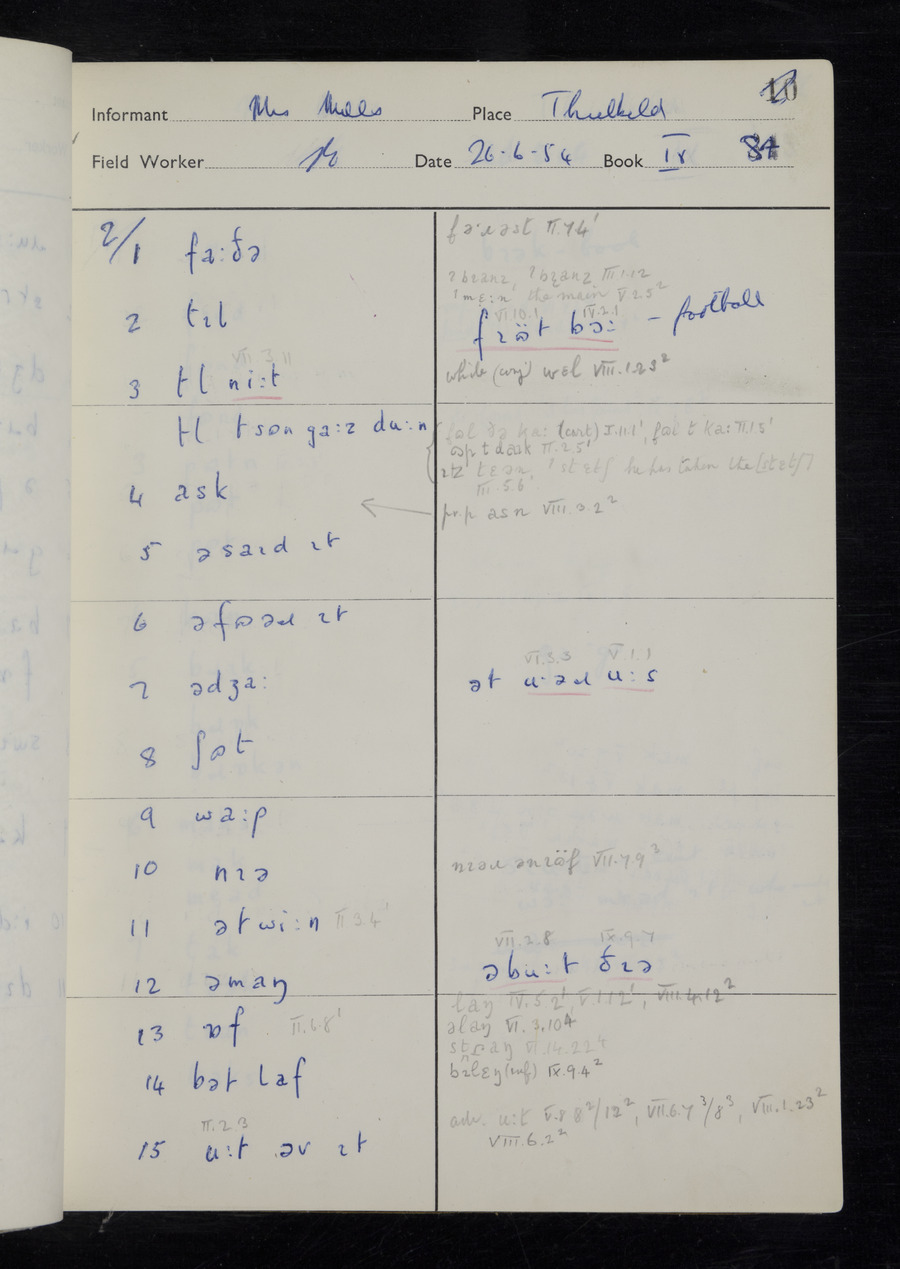 Informant Mrs Place Threlkeld 10
Field Worker Date 26·6·54 Book IX 84
2/1 fa:ðə
fə:ɹəst
2 tɪl
III.1.12
'mɛ:n the main V.2.5²
VI.10.1 IX.2.1
fɹöt bɔ: – football
VII 3 11
3 tl ni:t
while (conj) wɛl VIII.1.23²
tl t sɵn ga:z du:n
fəl ðə ka: (cart) I.11.1', fəl t ka: II.1.5'
ɵp t dask II.2.5'
he has taken the
4 ask
III.5.6'
pr.p asn VIII.3.2²
5 əsaɪd ɪt
6 əfɵəɹ ɪt
VI.3.3 V 1.1
7 ədʒa:
ət u:əɹ u:s
8 ʃɵt
9 wa:p
10 nɪə
nɪəɹ ənɪöf VII.7.9³
11 ətwi:n II 3.4'
VII.2.8 IX.9.7
12 əmaŋ
əbu:t ðɪə
laŋ IV.5.2', V.1.12', VIII.4.12²
13 ɒf II.6.8'
əlaŋ VI.3.10⁴
stɹaŋ VI.14.22⁴
14 bət laf
bɪlɛŋ (inf) IX.9.4²
adv. u:t V.8 8²/12², VII.6.7³/8³, VIII.1.23²
II.2.3
VIII.6.2²
15 u:t əv ɪt